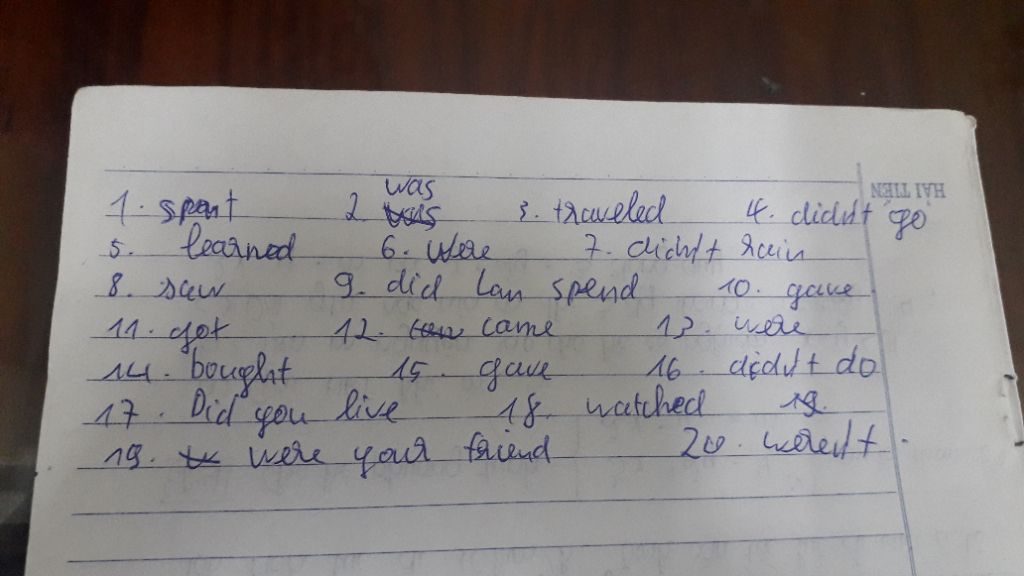 1. spent 2. was 3. traveled 4. didn't go
HẢI TIẾN
5. learned 6. were 7. didn't rain
8. saw 9. did Lan spend 10. gave
11. got 12. came 13. were
14. bought 15. gave 16. didn't do
17. Did you live 18. watched 19.
19. were your friend 20. weren't.